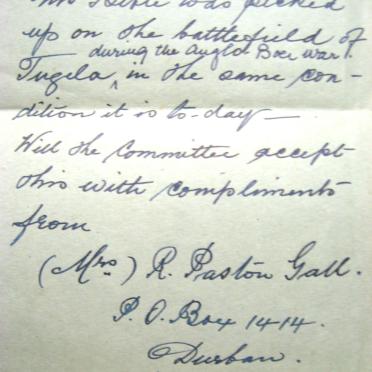 This Bible was picked
up on the battlefield of
during the Anglo Boer war.
Tugela ^ in the same con-
dition it is to-day—
Will the Committee accept
this with compliments
from
(Mrs) R. Paston Gall.
P. O. Box 1414.
Durban.